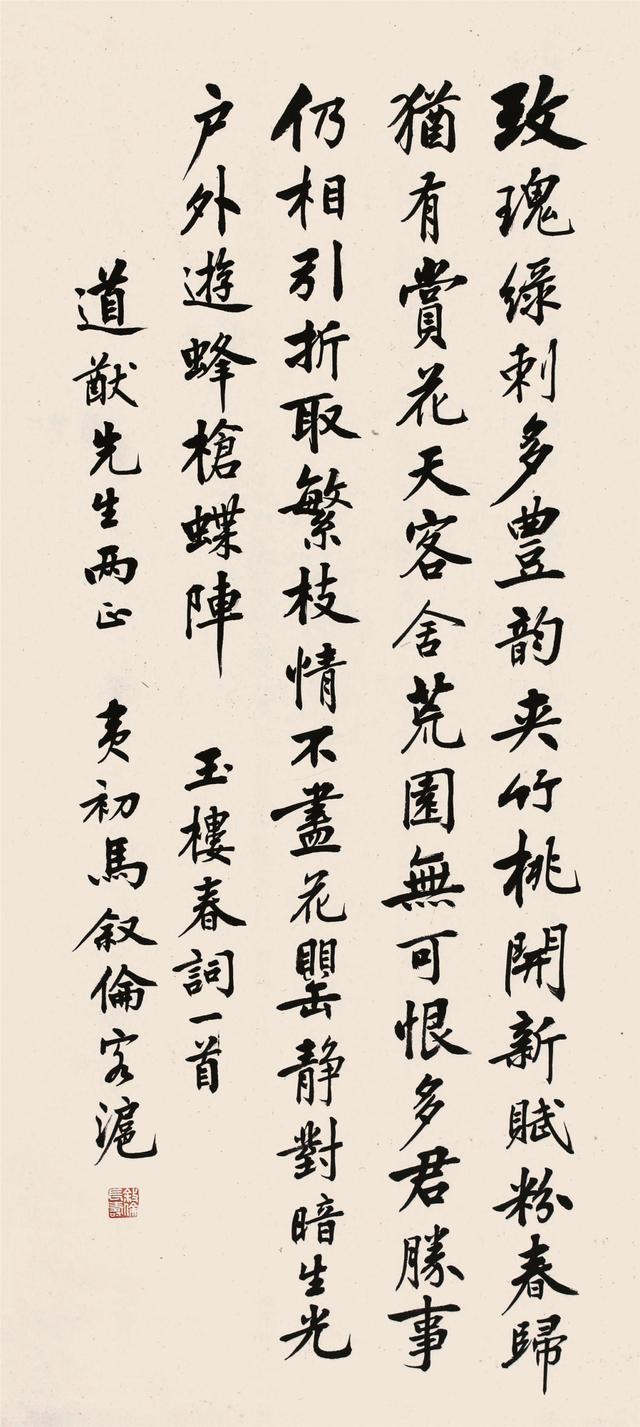 玫瑰綠刺多豐韵夾竹桃開新賦粉春歸
猶有賞花天客舍荒園無可恨多君勝事
仍相引折取繁枝情不盡花罌静對暗生光
户外遊蜂槍蝶陣 玉樓春詞一首
道猷先生兩正 夷初馬叙倫客滬
叙倫長壽